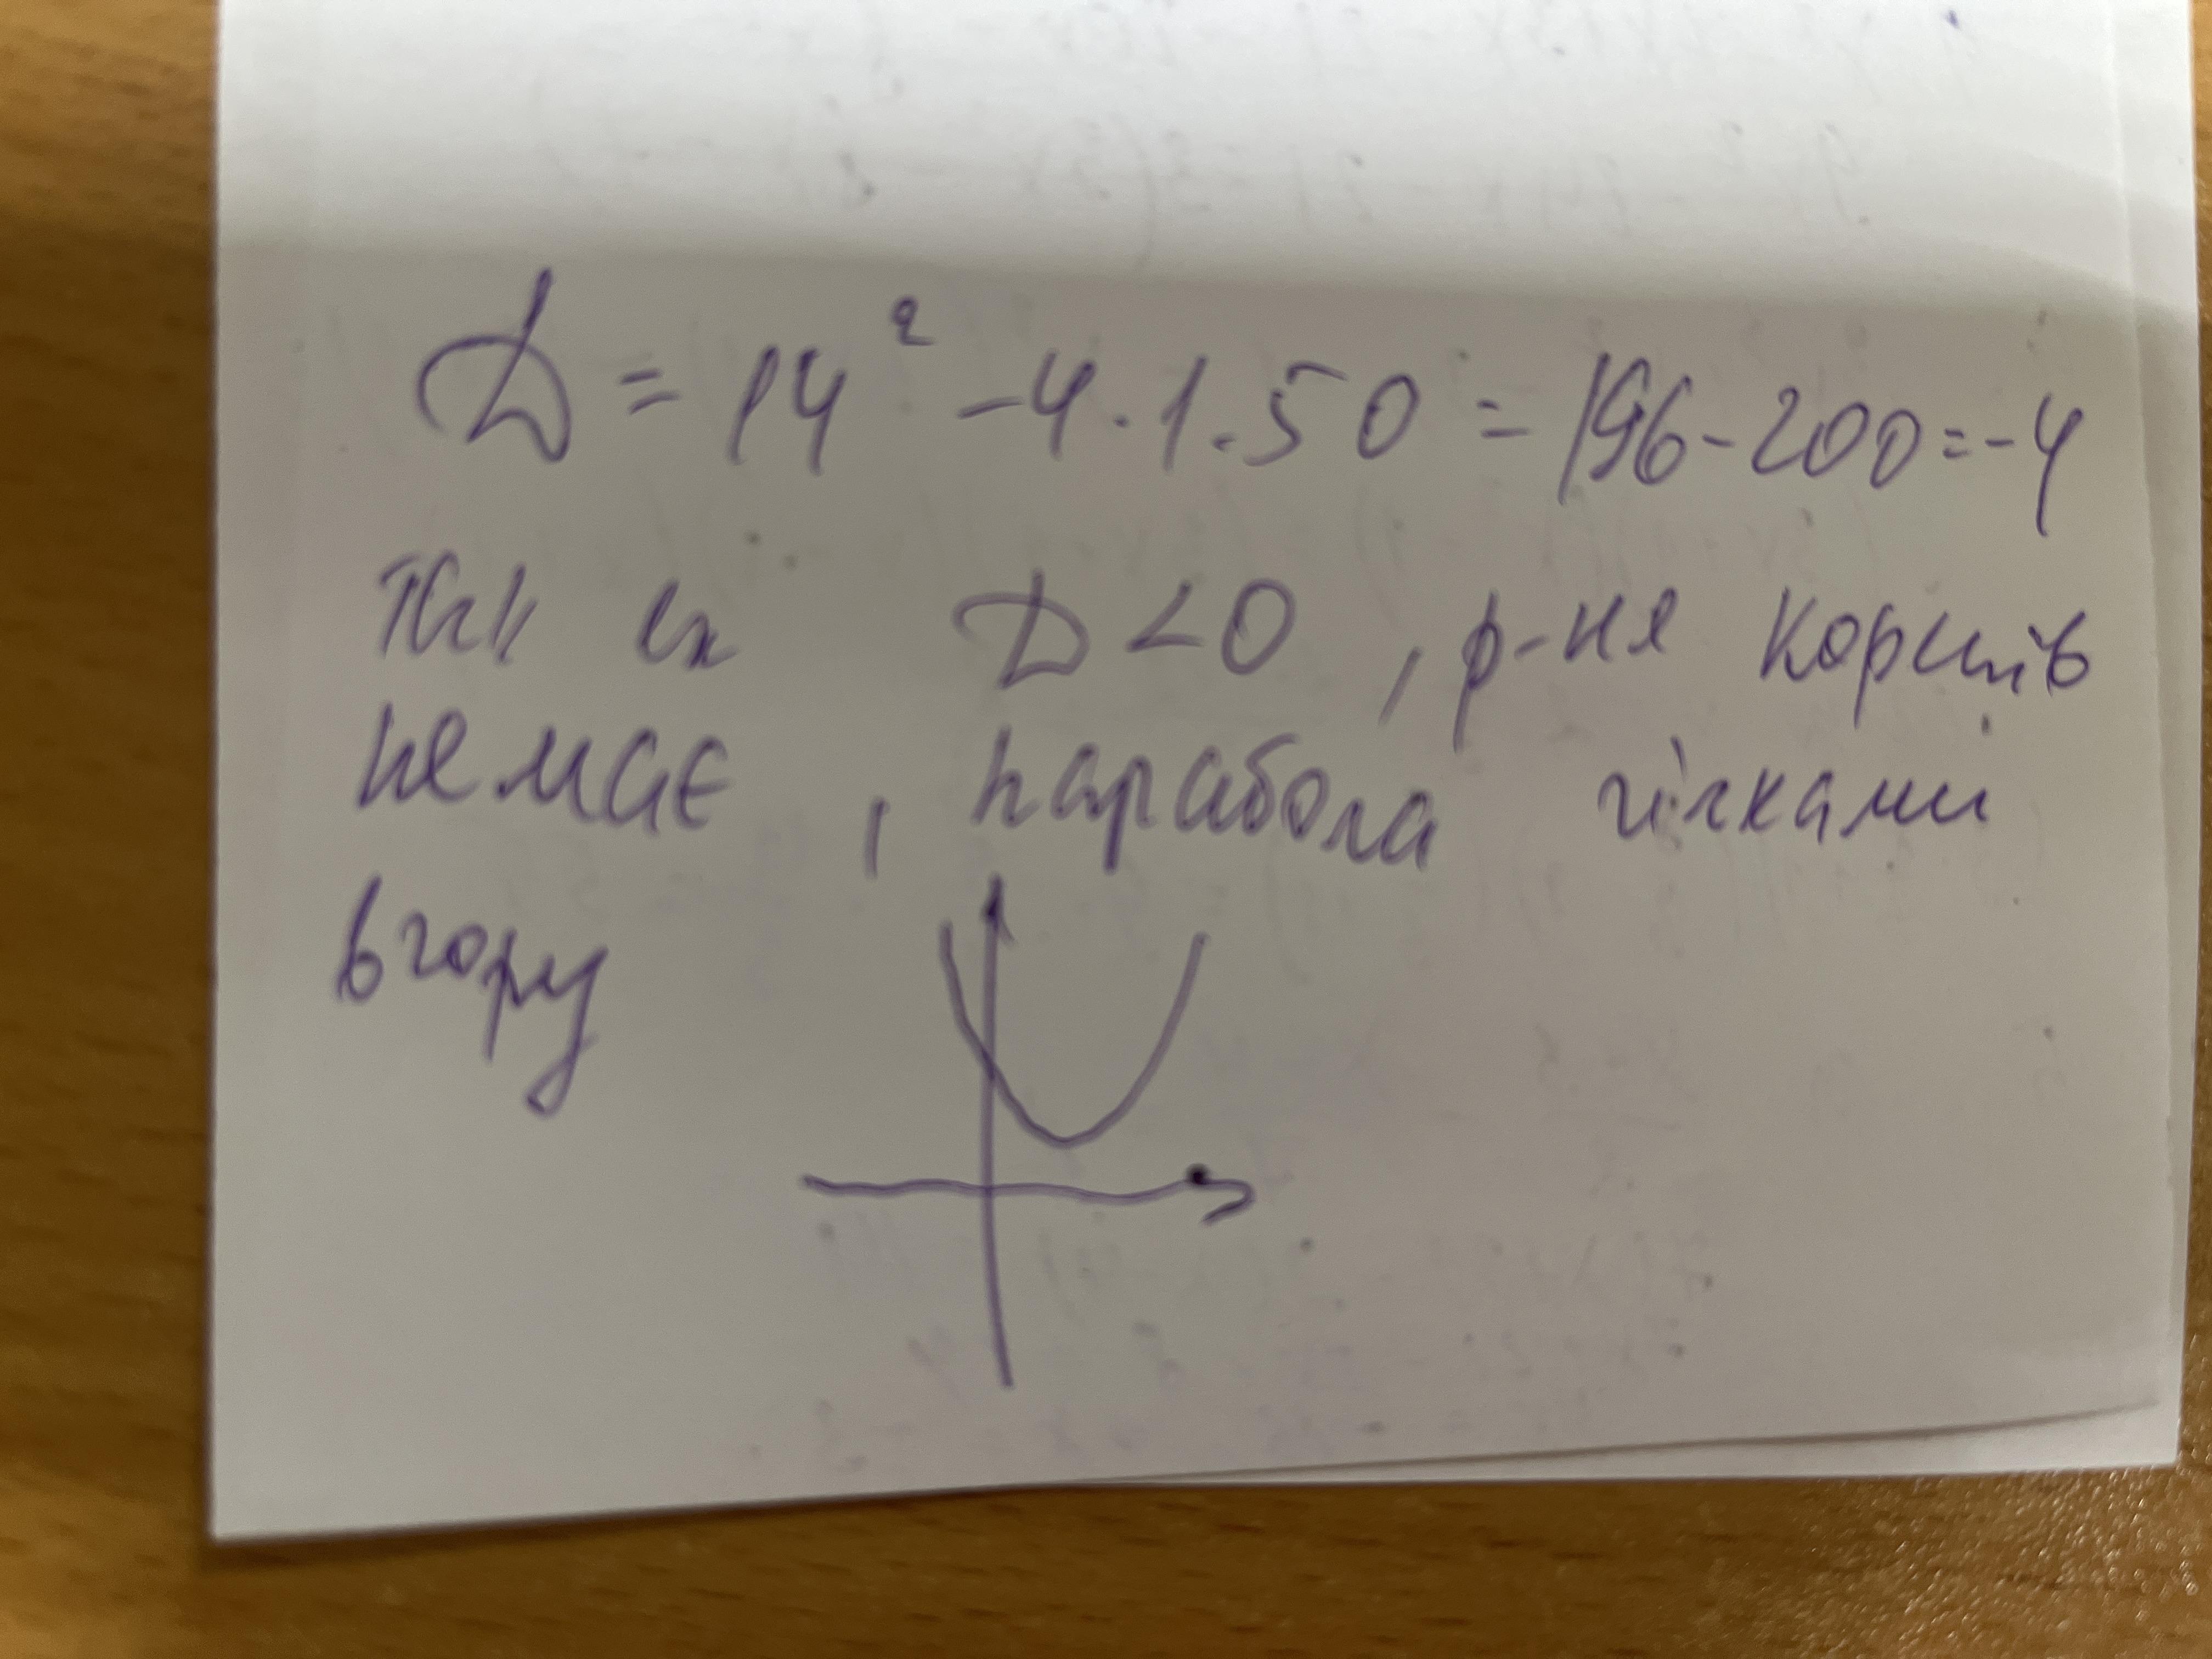 D = 14² - 4 · 1 · 50 = 196 - 200 = -4
так як D < 0, р-ня коренів
немає, парабола гілками
вгору